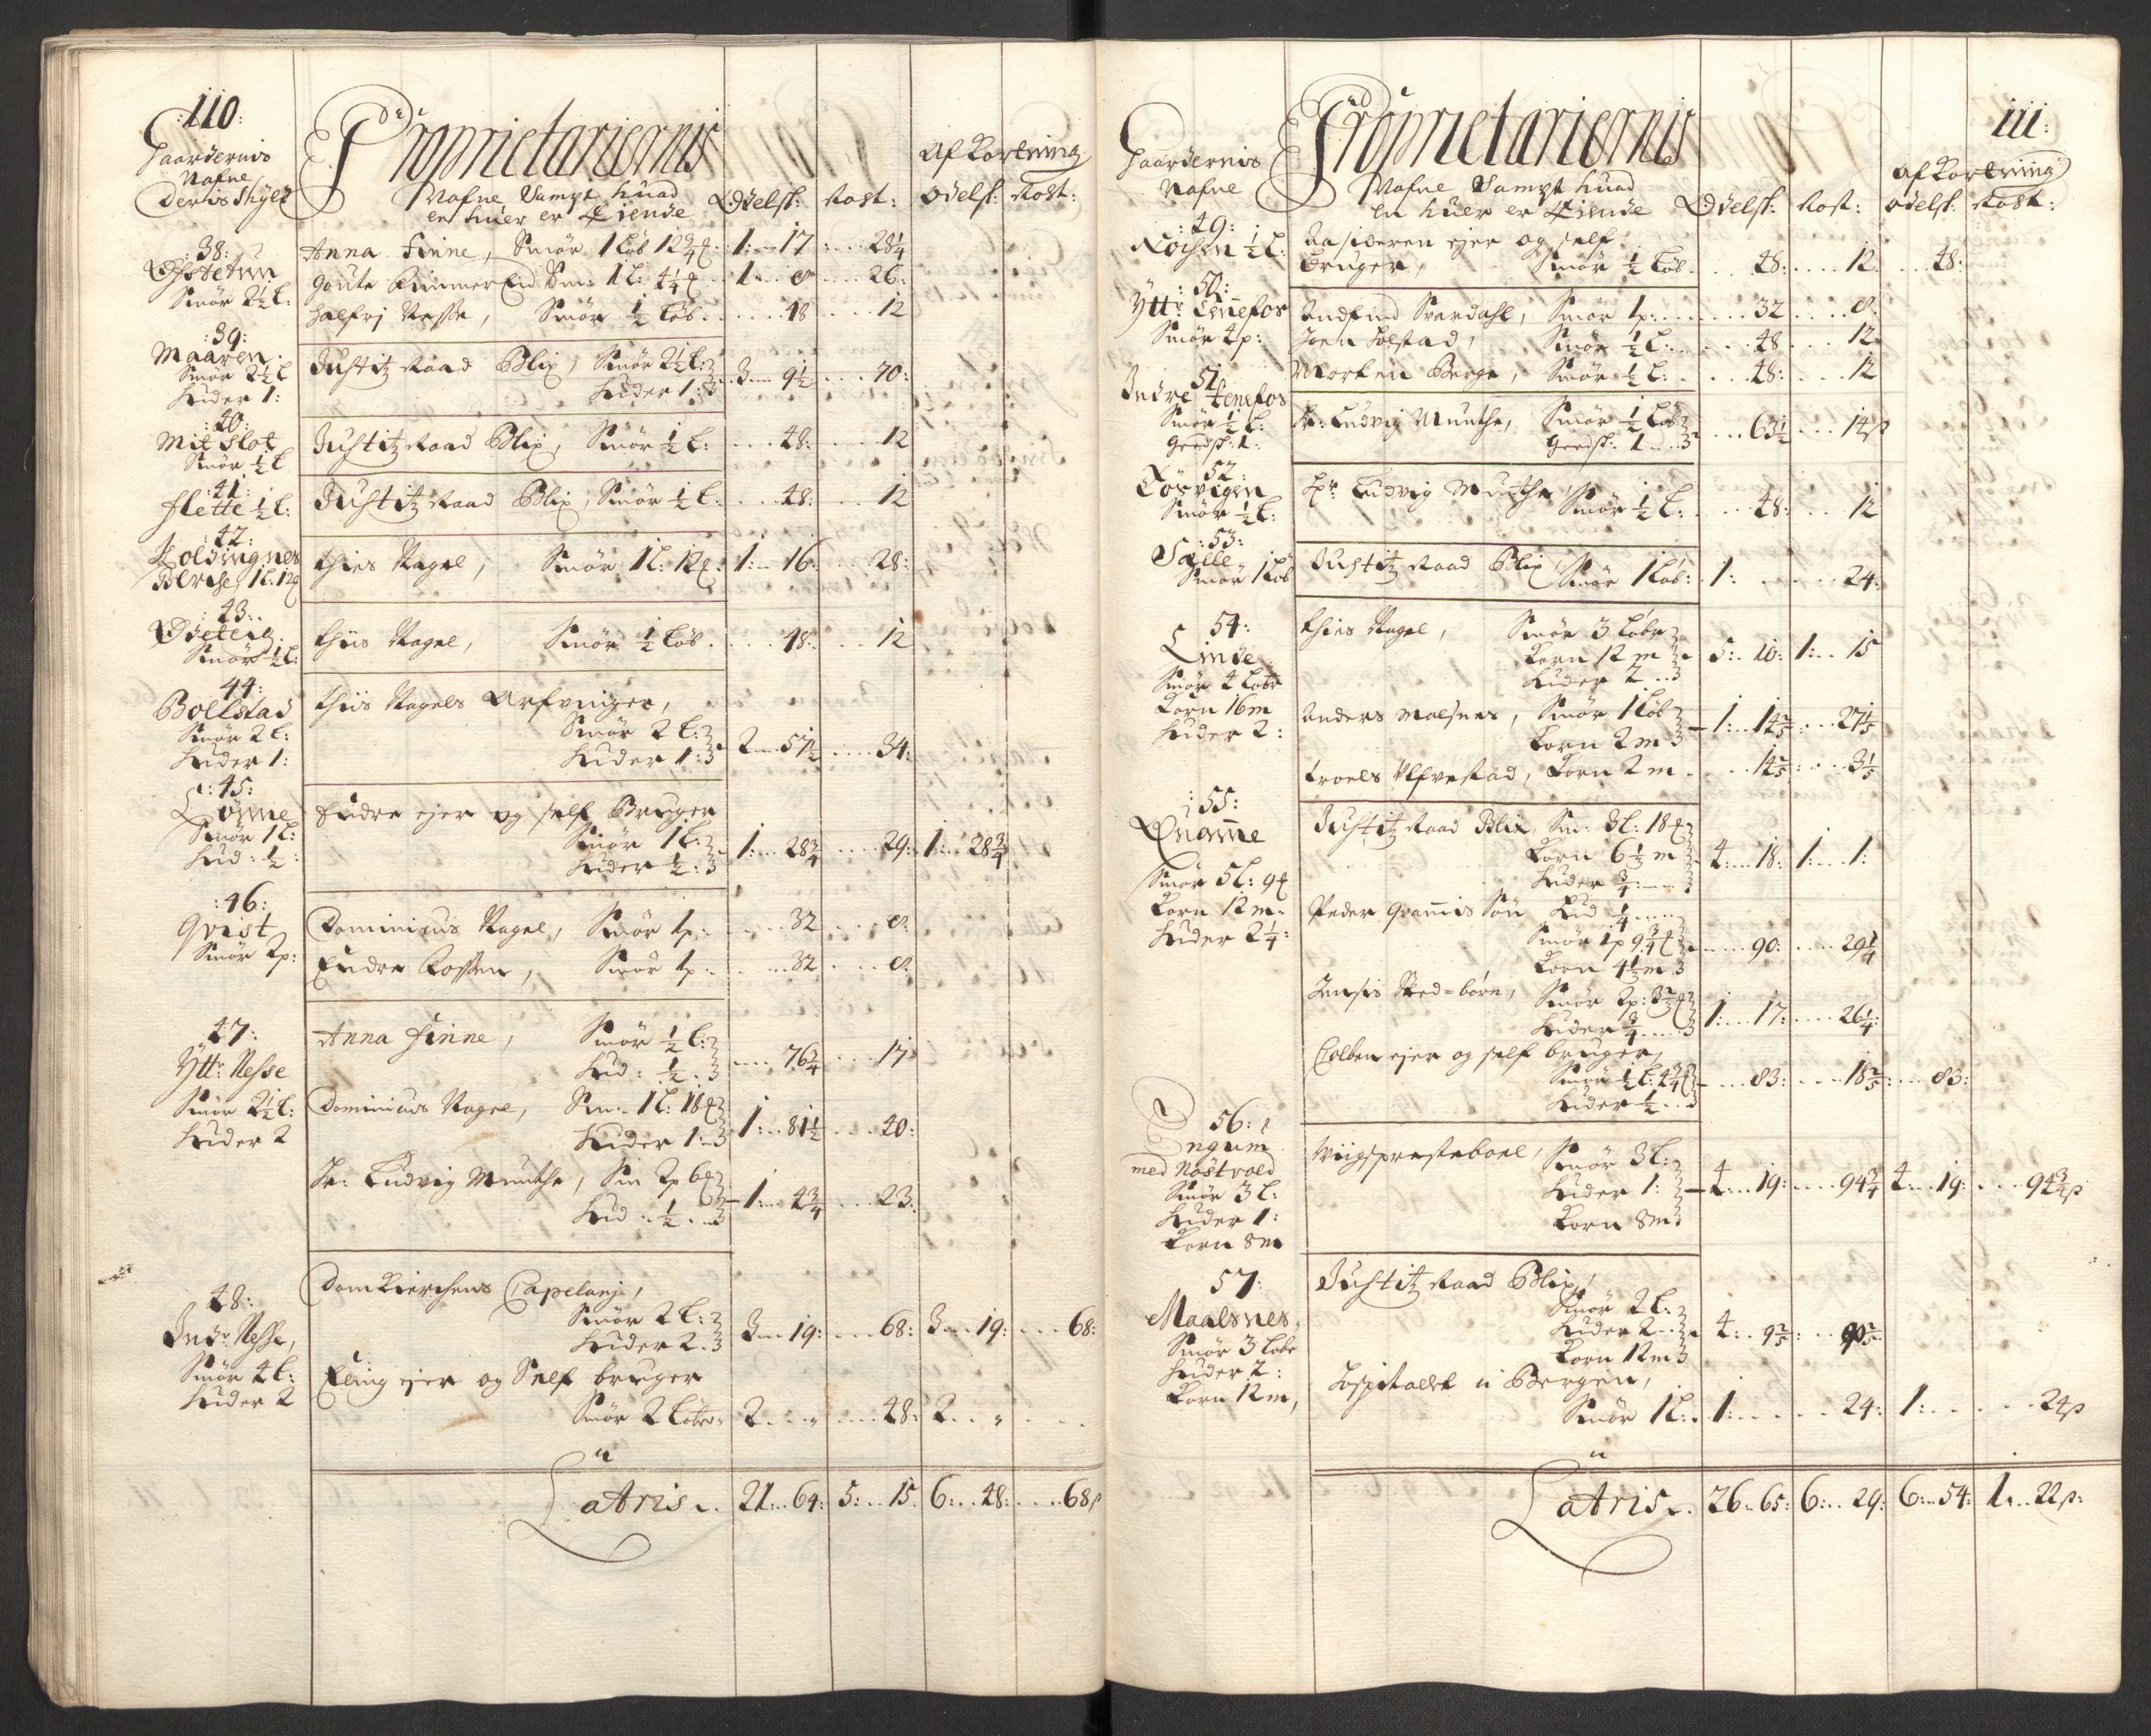 110:
Gaardernis
Nafne
Deris Skyld
De
Proprietariernis
Nafne Sampt huad
en huer er Eiende
Odelsk: Rost:
afkortning
Odelsk: Rost:
38:
Opstetun
Smör 2½ L:
Anna Finne, Smör 1 Løb 12¾ 1: 17 28¼
Goute Rimmereid Sm: 1 L: 4¼ 1 8 26:
Halfri Nesse, Smör ½ Løb 48 12
39:
Maaren
Smör 2½ L
Huder 1:
Justitz Raad Blix, Smör 2½ L:
Huder 1: 3 9½ 70:
40:
Mit Slot
Smör ½ L
Justitz Raad Blix, Smör ½ L: 48: 12
41:
Flette ½ L:
Justitz Raad Blix, Smör ½ L: 48: 12
42:
Holdingnes
1 L: 12
Thies Nagel, Smör 1 L: 12 1: 16: 28:
43:
Ødeteig
Smör ½ L:
Thiis Nagel, Smör ½ Løb 48: 12
44:
Bollstad
Smör 2 L:
Huder 1:
Thiis Nagels Arfvinger,
Smör 2 L:
Huder 1: 2 57½ 34:
45:
Lønne
Smör 1 L:
Hud: ½:
Endre ejer og self Bruger
Smör 1 L:
Huder ½: 1: 28¾ 29: 1: 28¾
46:
Qvist
Smör 2p:
Dominicus Nagel, Smör 1p: 32 8:
Endre Rossen, Smör 1p: 32 8:
47:
Ytt: Nesse
Smör 2½ L:
Huder 2
Anna Finne, Smör ½ L:
Hud: ½. 76¾ 17
Dominicus Nagel, Sm: 1 L: 18
Huder 1: 1: 81½ 40:
Hr: Ludvig Munthe, Sm 2p 6
Hud: ½. 1: 43¾ 23:
48:
Indr: Nesse,
Smör 4 L:
Huder 2
Domkierchens Capelani,
Smör 2 L:
Huder 2. 3 19: 68: 3 19: 68:
Eling ejer og Self bruger
Smör 2 Løber 2 48: 2
Latris 21 64: 5: 15 6: 48: 68
111:
Gaardernis
Nafne
De
Proprietariernis
Nafne Sampt huad
en huer er Eiende
Odelsk: Rost:
afkortning
odelsk: Rost:
49:
½ L:
ejer og self
Bruger, Smör ½ Løb 48: 12 48:
50:
Ytt: Tennefos
Smör 4p:
Andfind Svardahl, Smör 1p: 32 8:
Joen Holstad, Smör ½ L: 48 12
Morten Berge, Smör ½ L: 48: 12
51
Indre Tenefos
Smör ½ L:
Geedsk: 1:
Hr: Ludvig Munthe, Smör ½ Løb
Geedsk: 1 63½ 14
52:
Smör ½ L:
Hr: Ludvig Munthe Smör ½ L: 48: 12
53:
Sælle
Smör 1 Løb
Justitz Raad Blix, Smör 1 Løb: 1: 24:
54:
Linde
Smör 4 Løbe
Korn 16 m
Huder 2:
Thies Nagel, Smör 3 Løbe
Korn 12 m
Huder 2 5: 10: 1: 15
Anders Malsnes, Smör 1 Løb
Korn 2 m 1: 14⅖ 27⅕
Troels Ulfvestad, Korn 2 m 14⅖: 3⅕
55:
Qvamme
Smör 5 L: 9
Korn 12 m:
Huder 2¼:
Justitz Raad Blix, Sm: 3 L: 18
Korn 6½ m
Huder ¾ 4: 18: 1: 1:
Peder Gramis Søn Hud ¼
Smör 1p 9¾
Korn 4½ m 90: 29¼
Jensis Sted=børn, Smör 2p: 3
Huder ¾ 1: 17: 26¼:
Colben ejer og self bruger,
Smör ½ L: 4¾
Huder ½ 83: 18⅖: 83:
56:
Engum
med Nöstvold
Smör 3 L:
Huder 1:
Korn 8 m
Wigspresteboel, Smör 3 L:
Huder 1:
Korn 8 m 4: 19: 94¾ 4: 19: 94¾
57:
Maalsnes,
Smör 3 Løbe
Huder 2:
Korn 12 m,
Justitz Raad Blix,
Smör 2 L:
Huder 2
Korn 12 m 4: 9⅖: 90⅖
Hospitalet i Bergen,
Smör 1 L: 1: 24: 1: 24
Latris 26 65: 6: 29: 6: 54: 1 22: